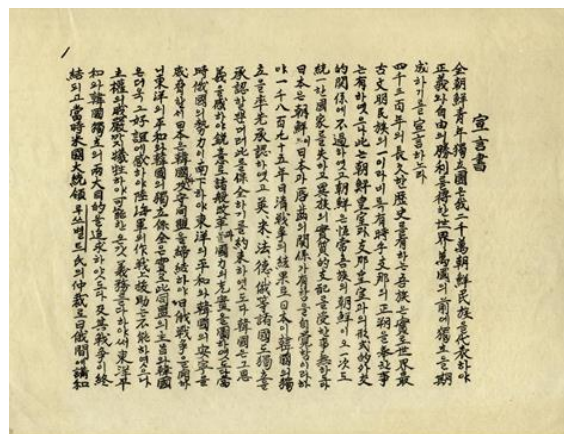 宣言書
全朝鮮靑年獨立團은我二千萬朝鮮民族을代表하야
正義와自由의勝利를得한世界萬國의前에獨立을期
成하기를宣言하노라
四千三百年의長久한歷史를有하는吾族은實로世界最
古文明民族의一이라비록有時乎支那의正朔을奉한事
는有하엿으나此는朝鮮皇室과支那皇室과의形式的外交
的關係에不過하엿고朝鮮은恒常吾族의朝鮮이오一次도
統一한國家를失하고異族의實質的支配를受한事無하도다
日本은朝鮮이日本과唇齒의關係가有함을自覺함이라하
야一千八百九十五年日淸戰爭의結果로日本이韓國의獨
立을率先承認하엿고英米法德俄等諸國도獨立을
承認할뿐더러此를保全하기를約束하엿도다韓國은그恩
義를感하야銳意로諸般改革과國力의充實을圖하엿도다當
時俄國의勢力이南下하야東洋의平和와韓國의安寧을
威脅할새日本은韓國과攻守同盟을締結하야日俄戰爭을開하
니東洋의平和와韓國의獨立保全은實로此同盟의主旨와韓國
은더욱그好誼에感하야陸海軍의作戰上援助는不能하엿으나
主權의威嚴까지犧牲하야可能한온갓義務를다하야써東洋平
和와韓國獨立의兩大目的을追求하얏도다及其戰爭이終
結되고當時米國大統領루쓰벨트氏의仲裁로日俄間에講和